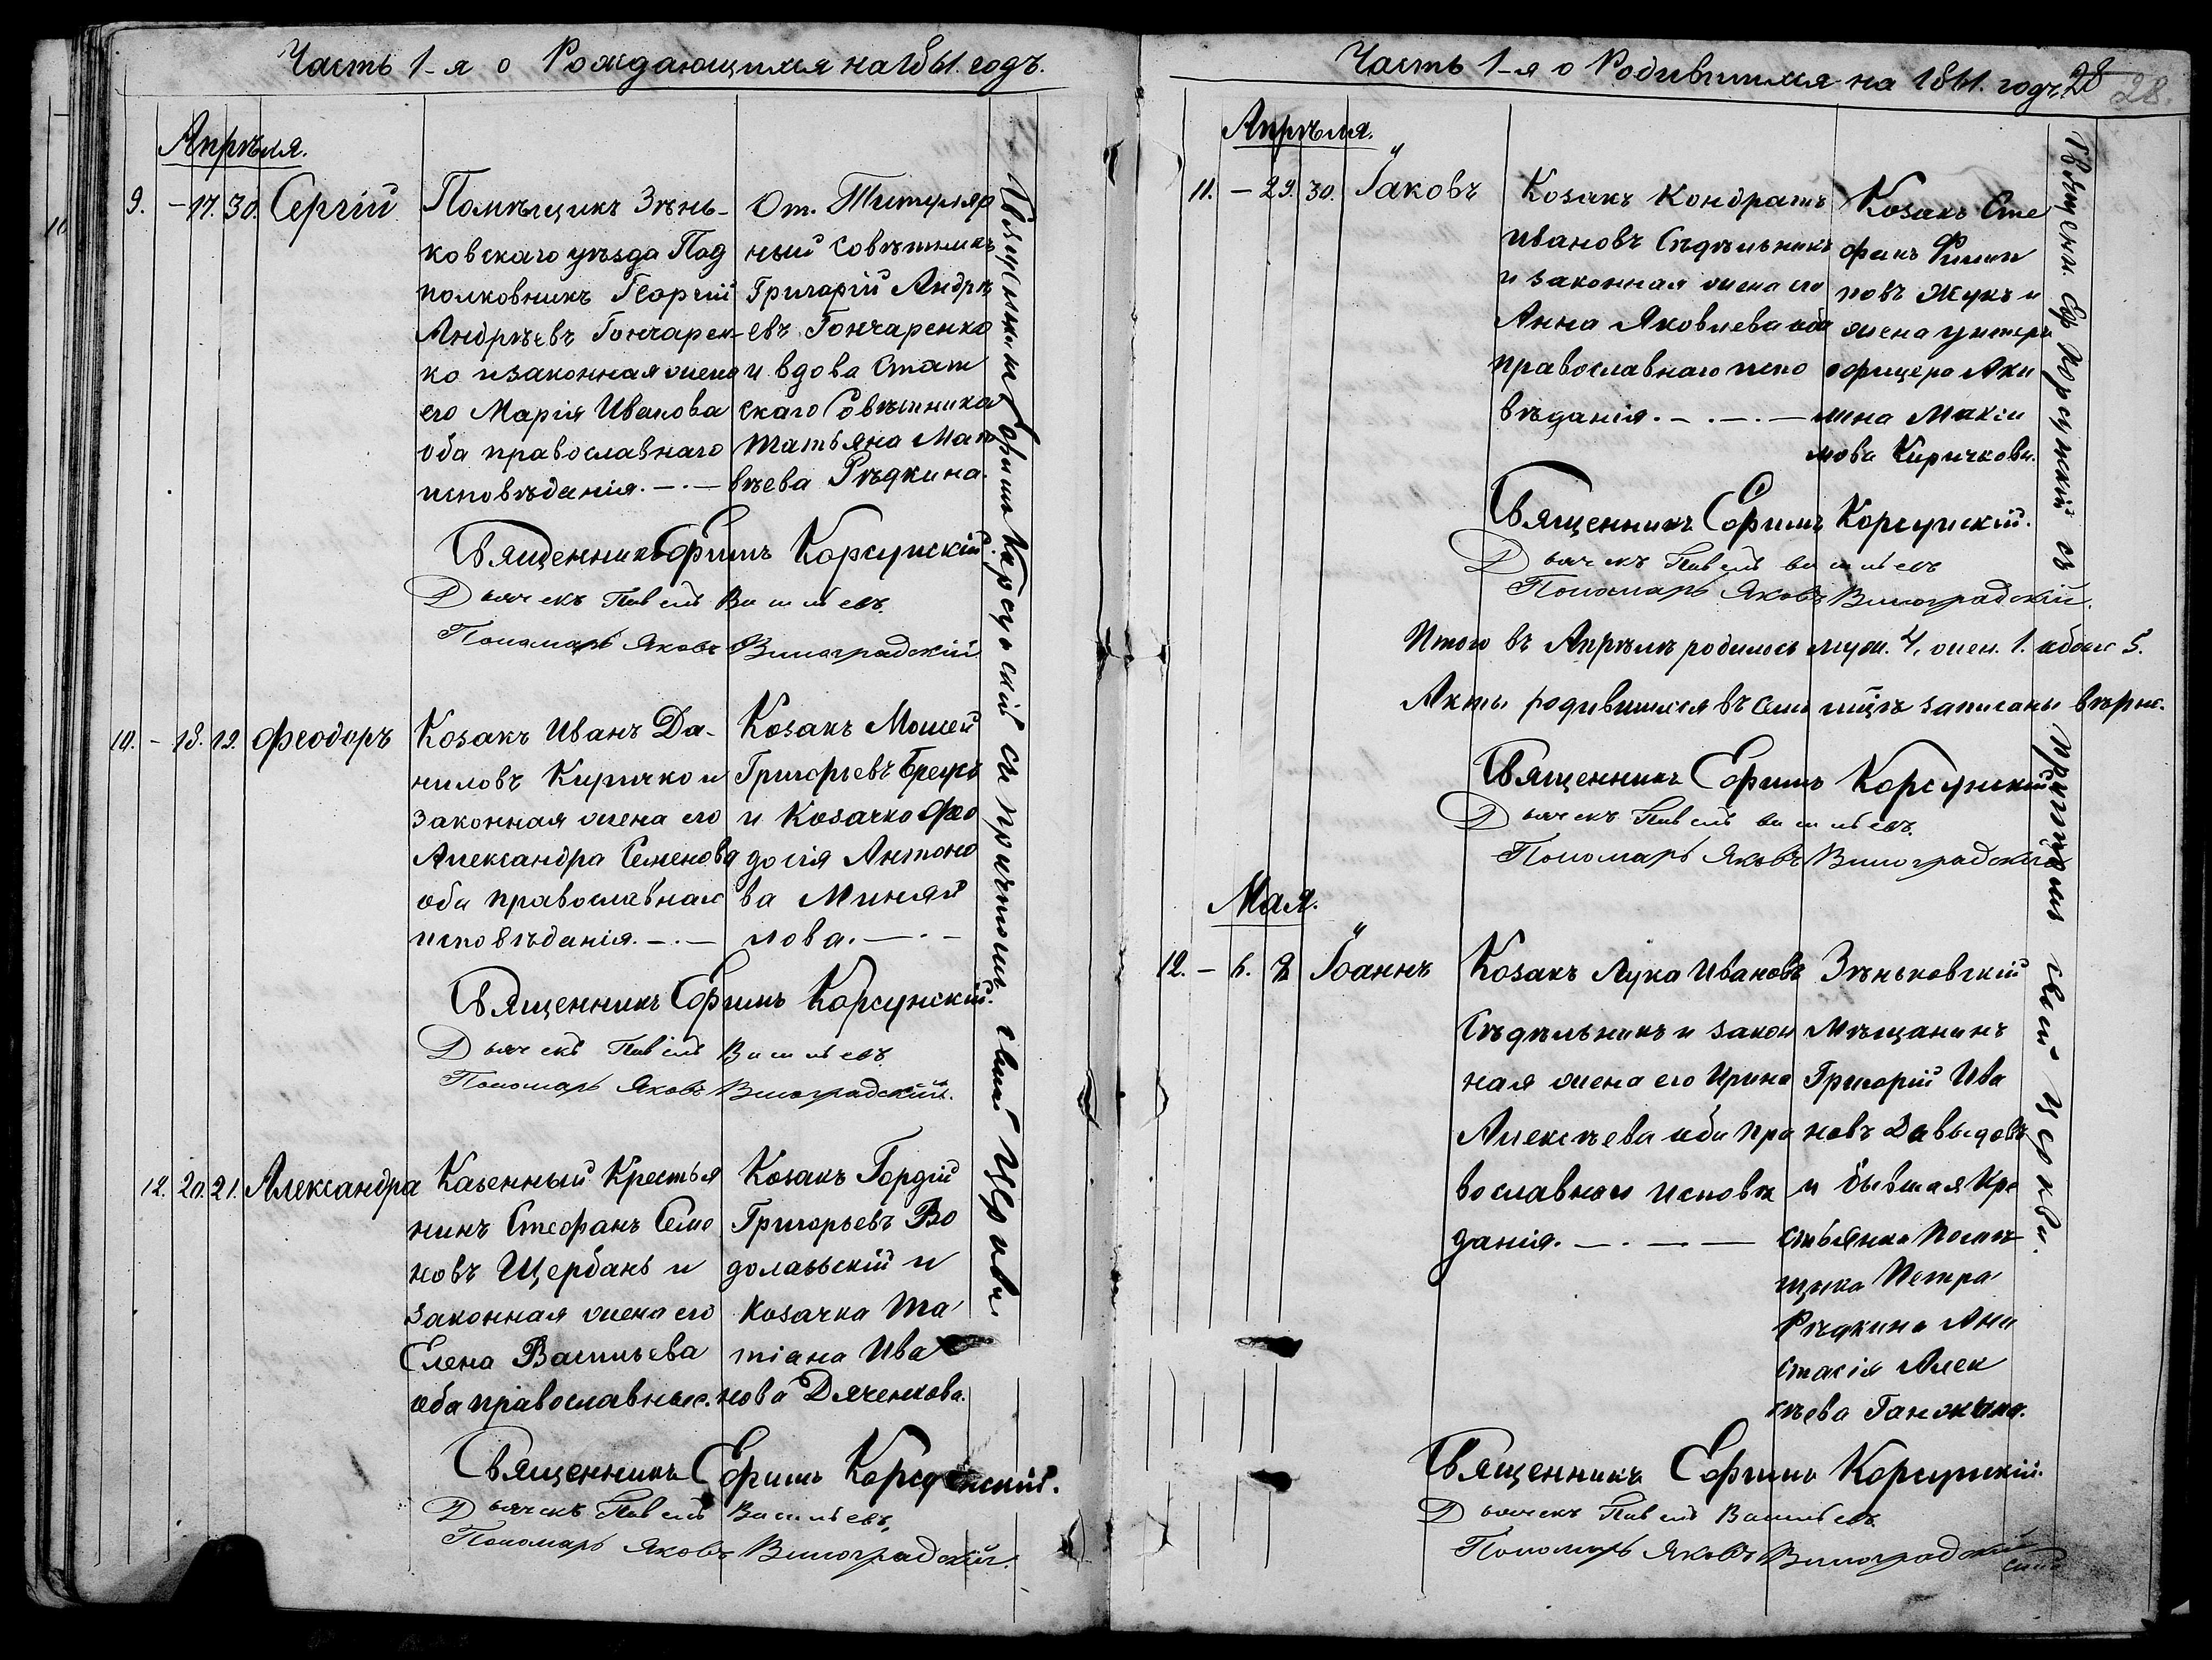 Часть 1-я о Рождающимся на 1861. годъ.
Апрѣля.
9. - 17. 30. Сергій
Помѣщикъ Зѣнь-
ковскаго уѣзда Под
полковникъ Георгій
Андрѣевъ Гончарен-
ко и законная жена
его Марія Иванова
оба православнаго
исповѣданія. -.-
От. Титуляр
ный Совѣтникъ
Григорій Андрѣ
евъ Гончаренко
и вдова Стат
скаго Совѣтника
Татьяна Мат
вѣева Рѣдкина.
Священникъ Ефимъ Корсунскій.
Дьячекъ Павелъ Васильевъ.
Пономарь Яковъ Виноградскій
10. - 18. 19. Феодоръ
Козакъ Иванъ Да-
ниловъ Киричко и
законная жена его
Александра Семенова
оба православнаго
исповѣданія. -.-
Козакъ Мошей
Григорьевъ
и Козачка Фео
досія Антоно
ва Миняй
лова. -.-
Священникъ Ефимъ Корсунскій.
Дьячекъ Павелъ Васильевъ.
Пономарь Яковъ Виноградскій.
12. 20. 21. Александра
Казенный Крестья
нинъ Стефанъ Семе
новъ Щербань и
законная жена его
Елена Васильева
оба православные.
Козакъ Гордій
Григорьевъ Во
долазьскій и
Козачка Та
тіана Ива
нова Дяченкова.
Священникъ Ефимъ Корсунскій.
Дьячекъ Павелъ Васильевъ,
Пономарь Яковъ Виноградскій.
Священникъ Ефимъ Корсунскій съ причтомъ сей Церкви
Часть 1-я о Родившимся на 1861. годъ 28 28.
Апрѣля.
11. - 29. 30. Іаковъ
Козакъ Кондратъ
Ивановъ Сѣдѣльникъ
и законная жена его
Анна Яковлева оба
православнаго испо
вѣданія. -.-.-
Козакъ Сте
фанъ Филип
повъ Жукъ и
жена унтеръ
офицера Аки
лина Макси
мова Киричкова.
Священникъ Ефимъ Корсунскій.
Дьячекъ Павелъ Васильевъ
Пономарь Яковъ Виноградскій.
Итого въ Апрѣлѣ родилось муж. 4, жен. 1. обоих 5.
Акты родившихся въ семъ мцѣ записаны вѣрно.
Священникъ Ефимъ Корсунскій
Дьячекъ Павелъ Васильевъ.
Пономарь Яковъ Виноградскій
Мая.
12. - 6. 8 Іоаннъ
Козакъ Лука Ивановъ
Сѣдѣльникъ и закон
ная жена его Ирина
Алексѣева оба пра
вославнаго исповѣ
данія. -.-.-
Зѣньковскій
Мѣщанинъ
Григорій Ива
новъ Давыдовъ
и бывшая Кре
стьянка Помѣ
щика Петра
Рѣдкина Ана
стасія Алек
сѣева
Священникъ Ефимъ Корсунскій.
Дьячекъ Павелъ Васильевъ
Пономарь Яковъ Виноградскій
Священн. Еф. Корсунскій съ причтомъ сей церкви.